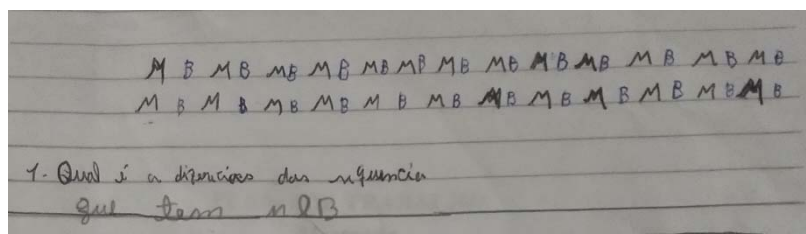 M B M B M B M B M B M B M B M B M B M B M B M B M B
M B M B M B M B M B M B M B M B M B M B M B M B
1- Qual é a das sequencia
que tem